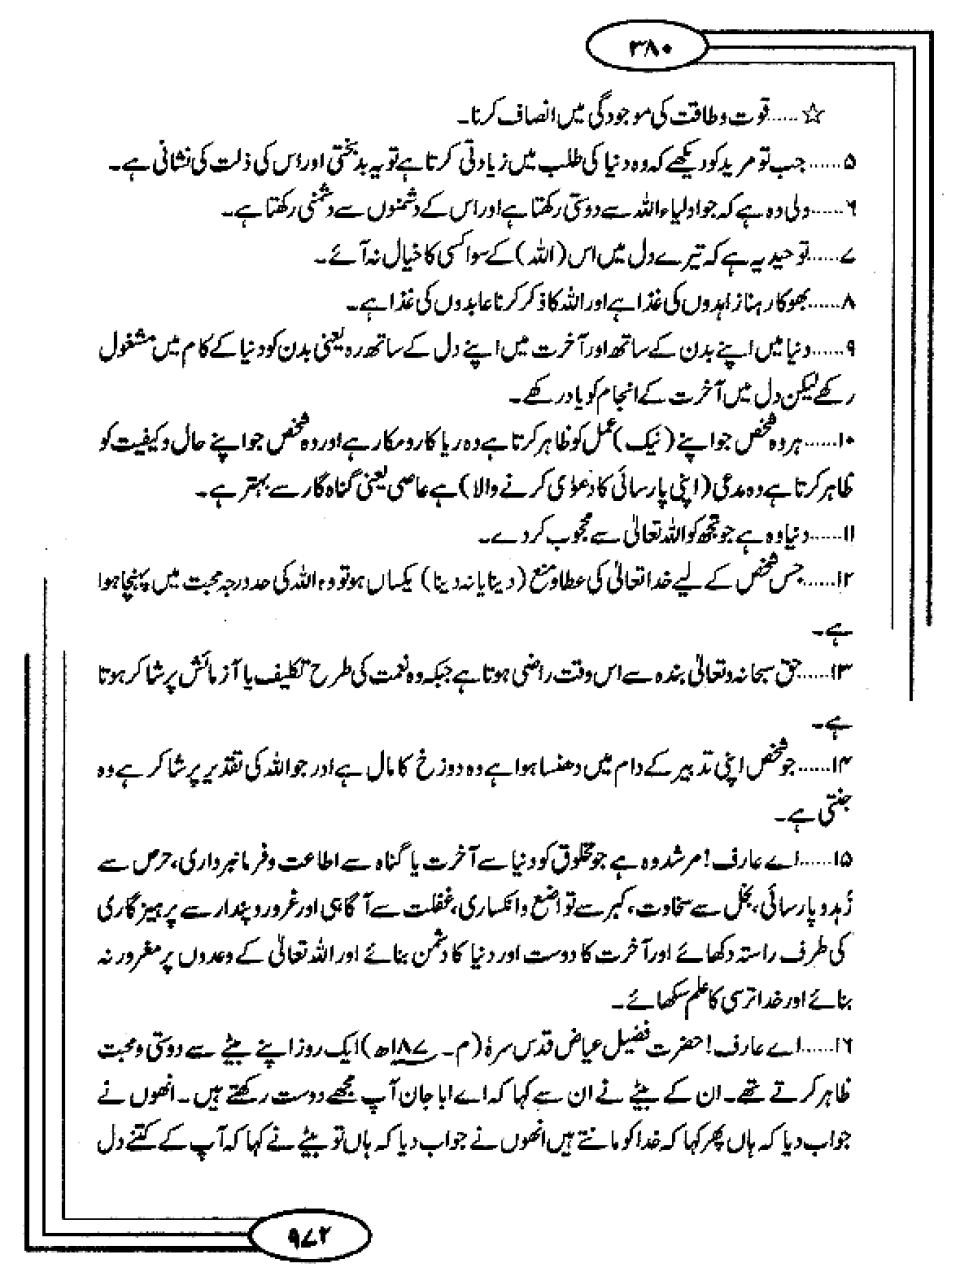 ۳۸۰
☆.....قوت وطاقت کی موجودگی میں انصاف کرنا۔
۵......جب تو مرید کو دیکھے کہ وہ دنیا کی طلب میں زیادتی کرتا ہے تو یہ بدبختی اور اس کی ذلت کی نشانی ہے۔
۶......ولی وہ ہے کہ جو اولیاء اللہ سے دوستی رکھتا ہے اور اس کے دشمنوں سے دشمنی رکھتا ہے۔
۷......توحید یہ ہے کہ تیرے دل میں اس (اللہ) کے سوا کسی کا خیال نہ آئے۔
۸......بھوکا رہنا زاہدوں کی غذا ہے اور اللہ کا ذکر کرنا عابدوں کی غذا ہے۔
۹......دنیا میں اپنے بدن کے ساتھ اور آخرت میں اپنے دل کے ساتھ رہ یعنی بدن کو دنیا کے کام میں مشغول
رکھے لیکن دل میں آخرت کے انجام کو یاد رکھے۔
۱۰......ہر وہ شخص جو اپنے (نیک) عمل کو ظاہر کرتا ہے وہ ریاکار و مکار ہے اور وہ شخص جو اپنے حال و کیفیت کو
ظاہر کرتا ہے وہ مدعی (اپنی پارسائی کا دعوٰی کرنے والا) ہے عاصی یعنی گناہ گار سے بہتر ہے۔
۱۱......دنیا وہ ہے جو تجھ کو اللہ تعالیٰ سے محجوب کر دے۔
۱۲......جس شخص کے لیے خدا تعالیٰ کی عطا و منع (دینا یا نہ دینا) یکساں ہو تو وہ اللہ کی حد درجہ محبت میں پہنچا ہوا
ہے۔
۱۳......حق سبحانہ وتعالیٰ بندہ سے اس وقت راضی ہوتا ہے جبکہ وہ نعمت کی طرح تکلیف یا آزمائش پر شاکر ہوتا
ہے۔
۱۴......جو شخص اپنی تدبیر کے دام میں دھنسا ہوا ہے وہ دوزخ کا مال ہے اور جو اللہ کی تقدیر پر شاکر ہے وہ
جنتی ہے۔
۱۵......اے عارف! مرشد وہ ہے جو مخلوق کو دنیا سے آخرت یا گناہ سے اطاعت و فرمانبرداری، حرص سے
زُہد و پارسائی، بخل سے سخاوت، کبر سے تواضع و انکساری، غفلت سے آگاہی اور غرور و پندار سے پرہیزگاری
کی طرف راستہ دکھائے اور آخرت کا دوست اور دنیا کا دشمن بنائے اور اللہ تعالیٰ کے وعدوں پر مغرور نہ
بنائے اور خدا ترسی کا علم سکھائے۔
۱۶......اے عارف! حضرت فضیل عیاض قدس سرہٗ (م۔ ۱۸۷ھ) ایک روز اپنے بیٹے سے دوستی و محبت
ظاہر کرتے تھے۔ ان کے بیٹے نے ان سے کہا کہ اے ابا جان آپ مجھے دوست رکھتے ہیں۔ انھوں نے
جواب دیا کہ ہاں پھر کہا کہ خدا کو مانتے ہیں انھوں نے جواب دیا کہ ہاں تو بیٹے نے کہا کہ آپ کے کتنے دل
۹۷۲